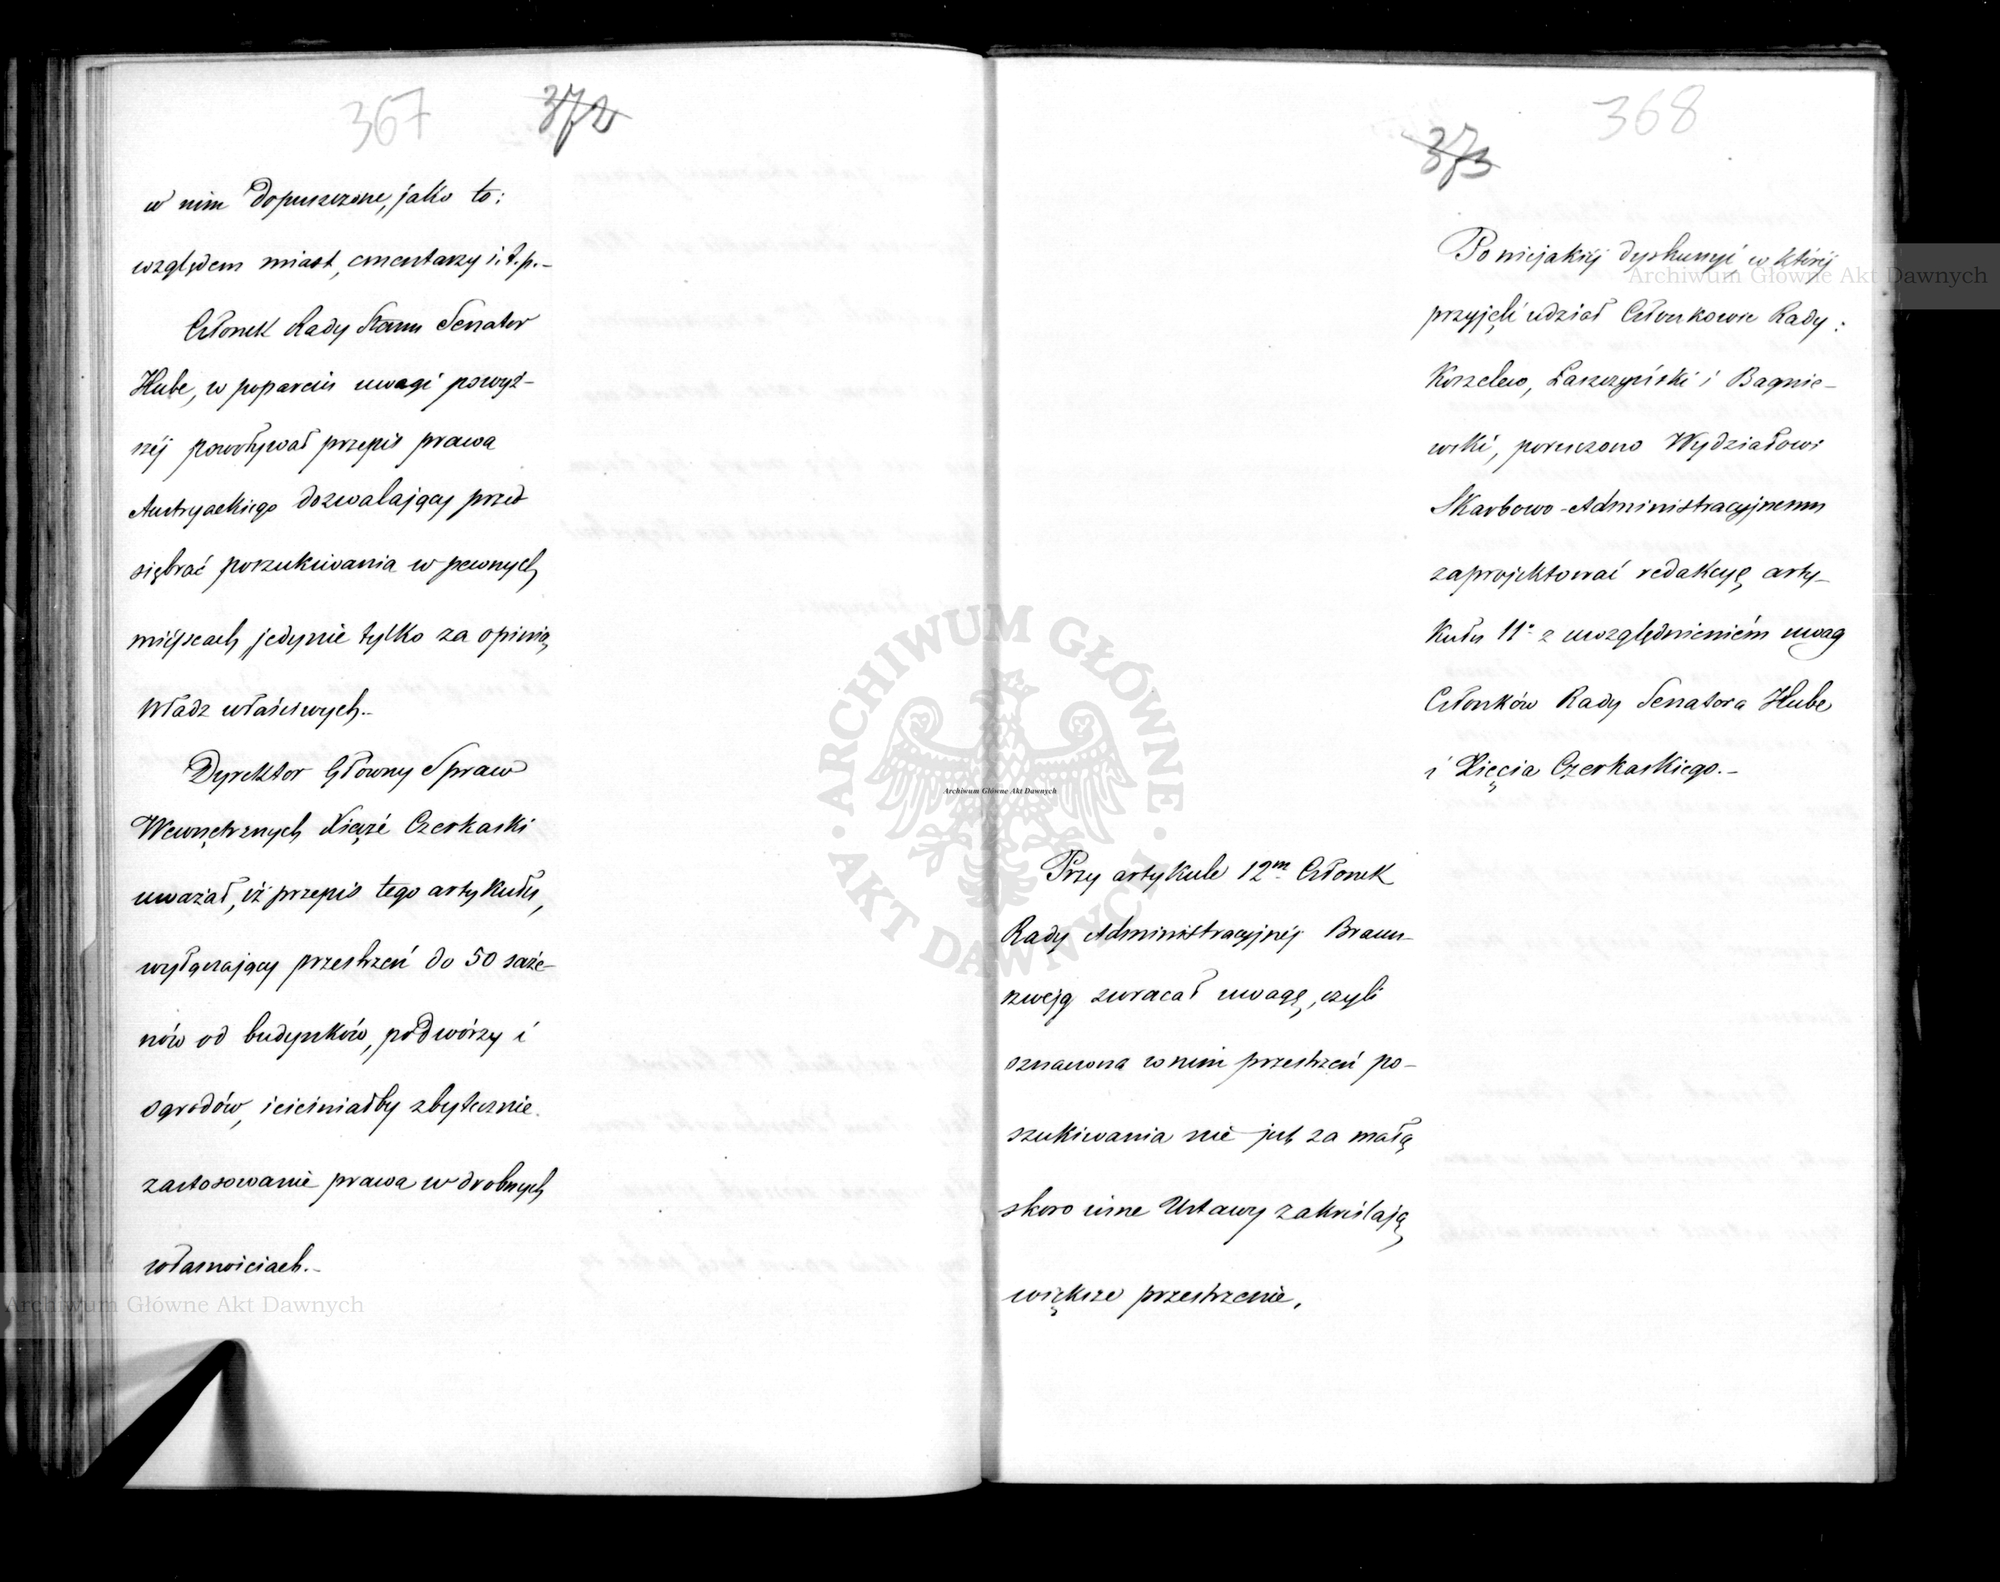 367
372
w nim dopuszczone, jako to:
względem miast, cmentarzy i.t.p.-
Członek Rady Stanu Senator
Hube, w poparciu uwagi powyż-
széj powoływał przepis prawa
Austryackiego dozwalający przed
siębrać poszukiwania w pewnych
miéjscach jedynie tylko za opinią
Władz właściwych.-
Dyrektor Główny Spraw
Wewnętrznych Xiążę Czerkaski
uważał, iż przepis tego artykułu,
wyłączający przestrzeń do 50 sąże-
nów od budynków, podwórzy i
ogrodów, iścieśniałby zbytecznie
zastosowanie prawa w drobnych
własnościach.-
368
373
Po niejakiéj dyskussyi w któréj
przyjęli udział Członkowie Rady:
Koszelew, Łaszczyński i Bagnie-
wski, poruczono Wydziałowi
Skarbowo-Administracyjnemu
zaprojektować redakcyę arty-
kułu 11º z uwzględnieniém uwag
Członków Rady Senatora Hube
i Xięcia Czerkaskiego.-
Przy artykule 12m Członek
Rady Administracyjnéj Braun-
szweig zwracał uwagę, czyli
oznaczona w nim przestrzeń po-
szukiwania nie jest za małą
skoro inne Ustawy zakreślają
większe przestrzenie,
Archiwum Główne Akt Dawnych
Archiwum Główne Akt Dawnych
Archiwum Główne Akt Dawnych
ARCHIWUM GŁÓWNE
AKT DAWNYCH